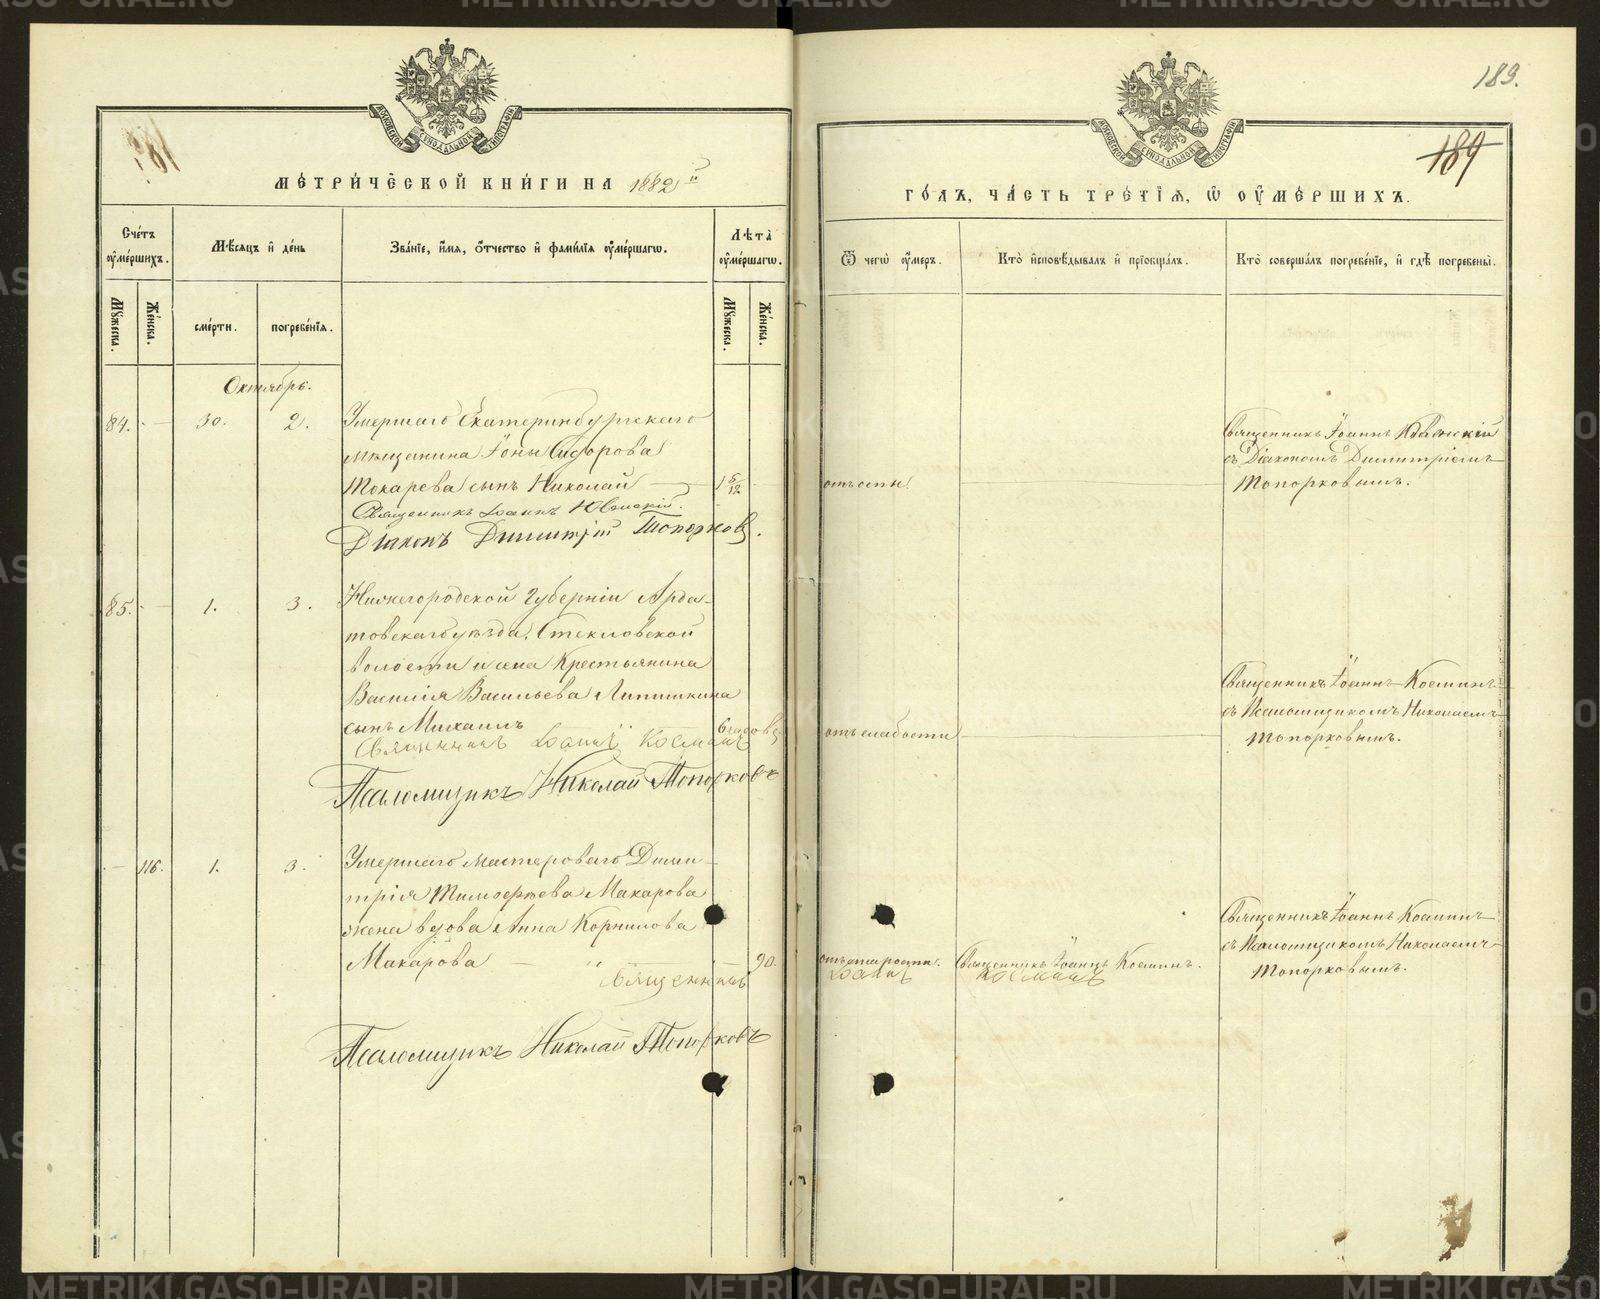 183.
189
МЕТРИЧЕСКОЙ КНИГИ НА 1882й
ГОДЪ, ЧАСТЬ ТРЕТІЯ, Ѿ ОУМЕРШИХЪ.
МОСКОВСКОЙ СѴНОДАЛЬНОЙ ТИПОГРАФІИ
МОСКОВСКОЙ СѴНОДАЛЬНОЙ ТИПОГРАФІИ
Счетъ оумершихъ.
Мѣсяцъ и день
Званіе, имя, отчество и фамилія оумершагѡ.
Лѣта оумершагѡ.
Ѿ чегѡ оумеръ.
Кто исповѣдывалъ и пріобщалъ.
Кто совершалъ погребеніе, и гдѣ погребены.
Мужеска.
Женска.
смерти.
погребенія.
Мужеска.
Женска.
Октябрь.
84. 30. 2. Умершаго Екатеринбургскаго
мѣщанина Іоны Сидорова
Токарева сынъ Николай 1 5/12 отъ оспы
Священникъ Іоаннъ
Діаконъ Димитрій Топорковъ.
Священникъ Іоаннъ
съ Діакономъ Димитріемъ
Топорковымъ.
85. 1. 3. Нижегородской Губерніи Арда-
товскаго уѣзда, Стекловской
волости и села Крестьянина
Василія Васильева Липишкина
сынъ Михаилъ 6 часовъ отъ слабости
Священникъ Іоаннъ Косминъ
Псаломщикъ Николай Топорковъ
Священникъ Іоаннъ Косминъ
съ Псаломщикомъ Николаемъ
Топорковымъ.
116. 1. 3. Умершаго мастероваго Дими-
трія Тимофѣева Макарова
жена вдова Анна Корнилова
Макарова 90. отъ старости. Священникъ Іоаннъ Косминъ.
Священникъ Іоаннъ Косминъ
Псаломщикъ Николай Топорковъ
Священникъ Іоаннъ Косминъ
съ Псаломщикомъ Николаемъ
Топорковымъ.
METRIKI.GASO-URAL.RU